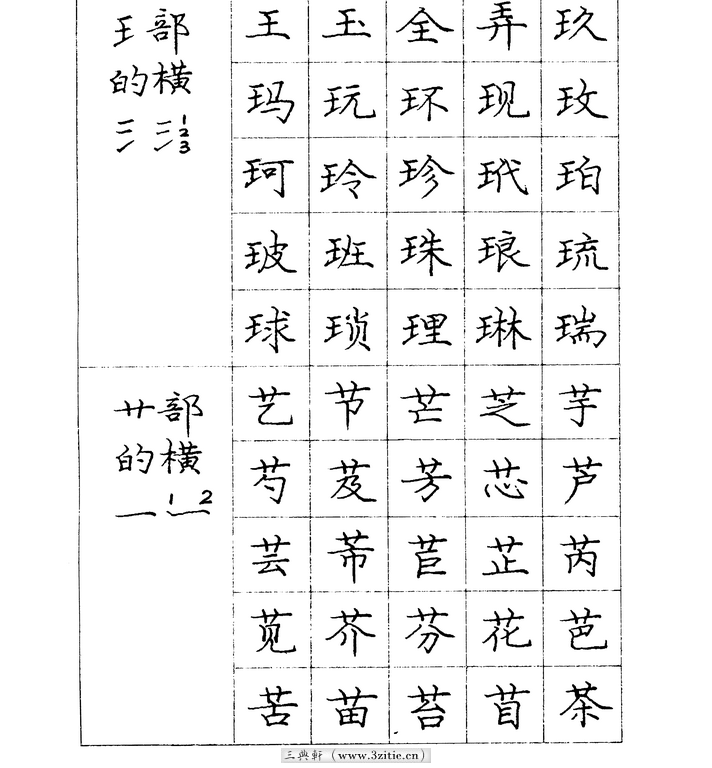 王部
的横
123
王玉全弄玖
玛玩环现玫
珂玲珍玳珀
玻班珠琅琉
球琐理琳瑞
艹部
的横
12
艺节芒芝芋
芍芨芳芯芦
芸芾苣芷芮
苋芥芬花芭
苦苗苔苜茶
三典軒（www.3zitie.cn）